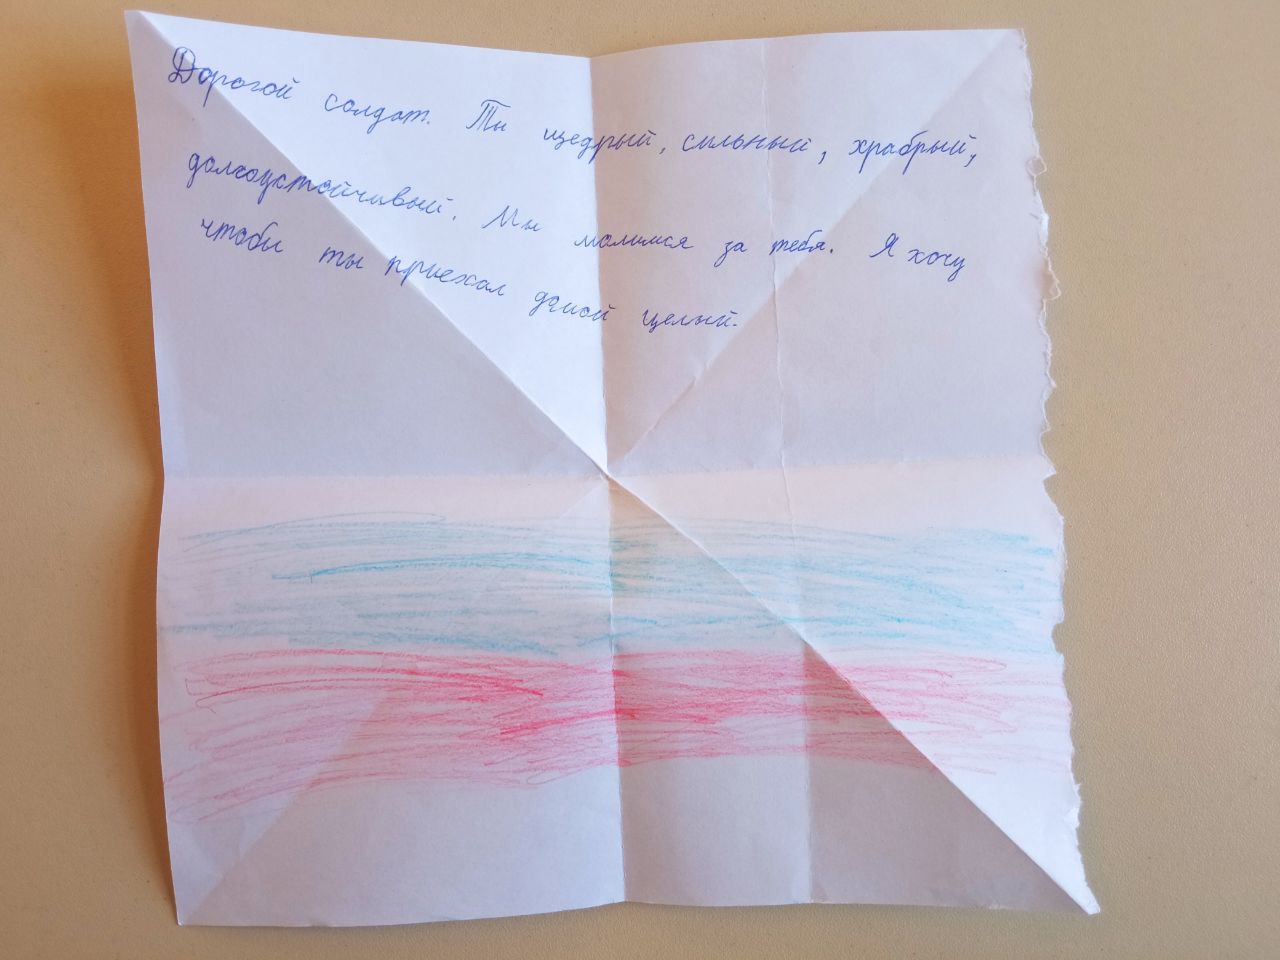 Дорогой солдат. Ты щедрый, сильный, храбрый,
долгоустойчивый. Мы молимся за тебя. Я хочу
чтобы ты приехал домой целый.